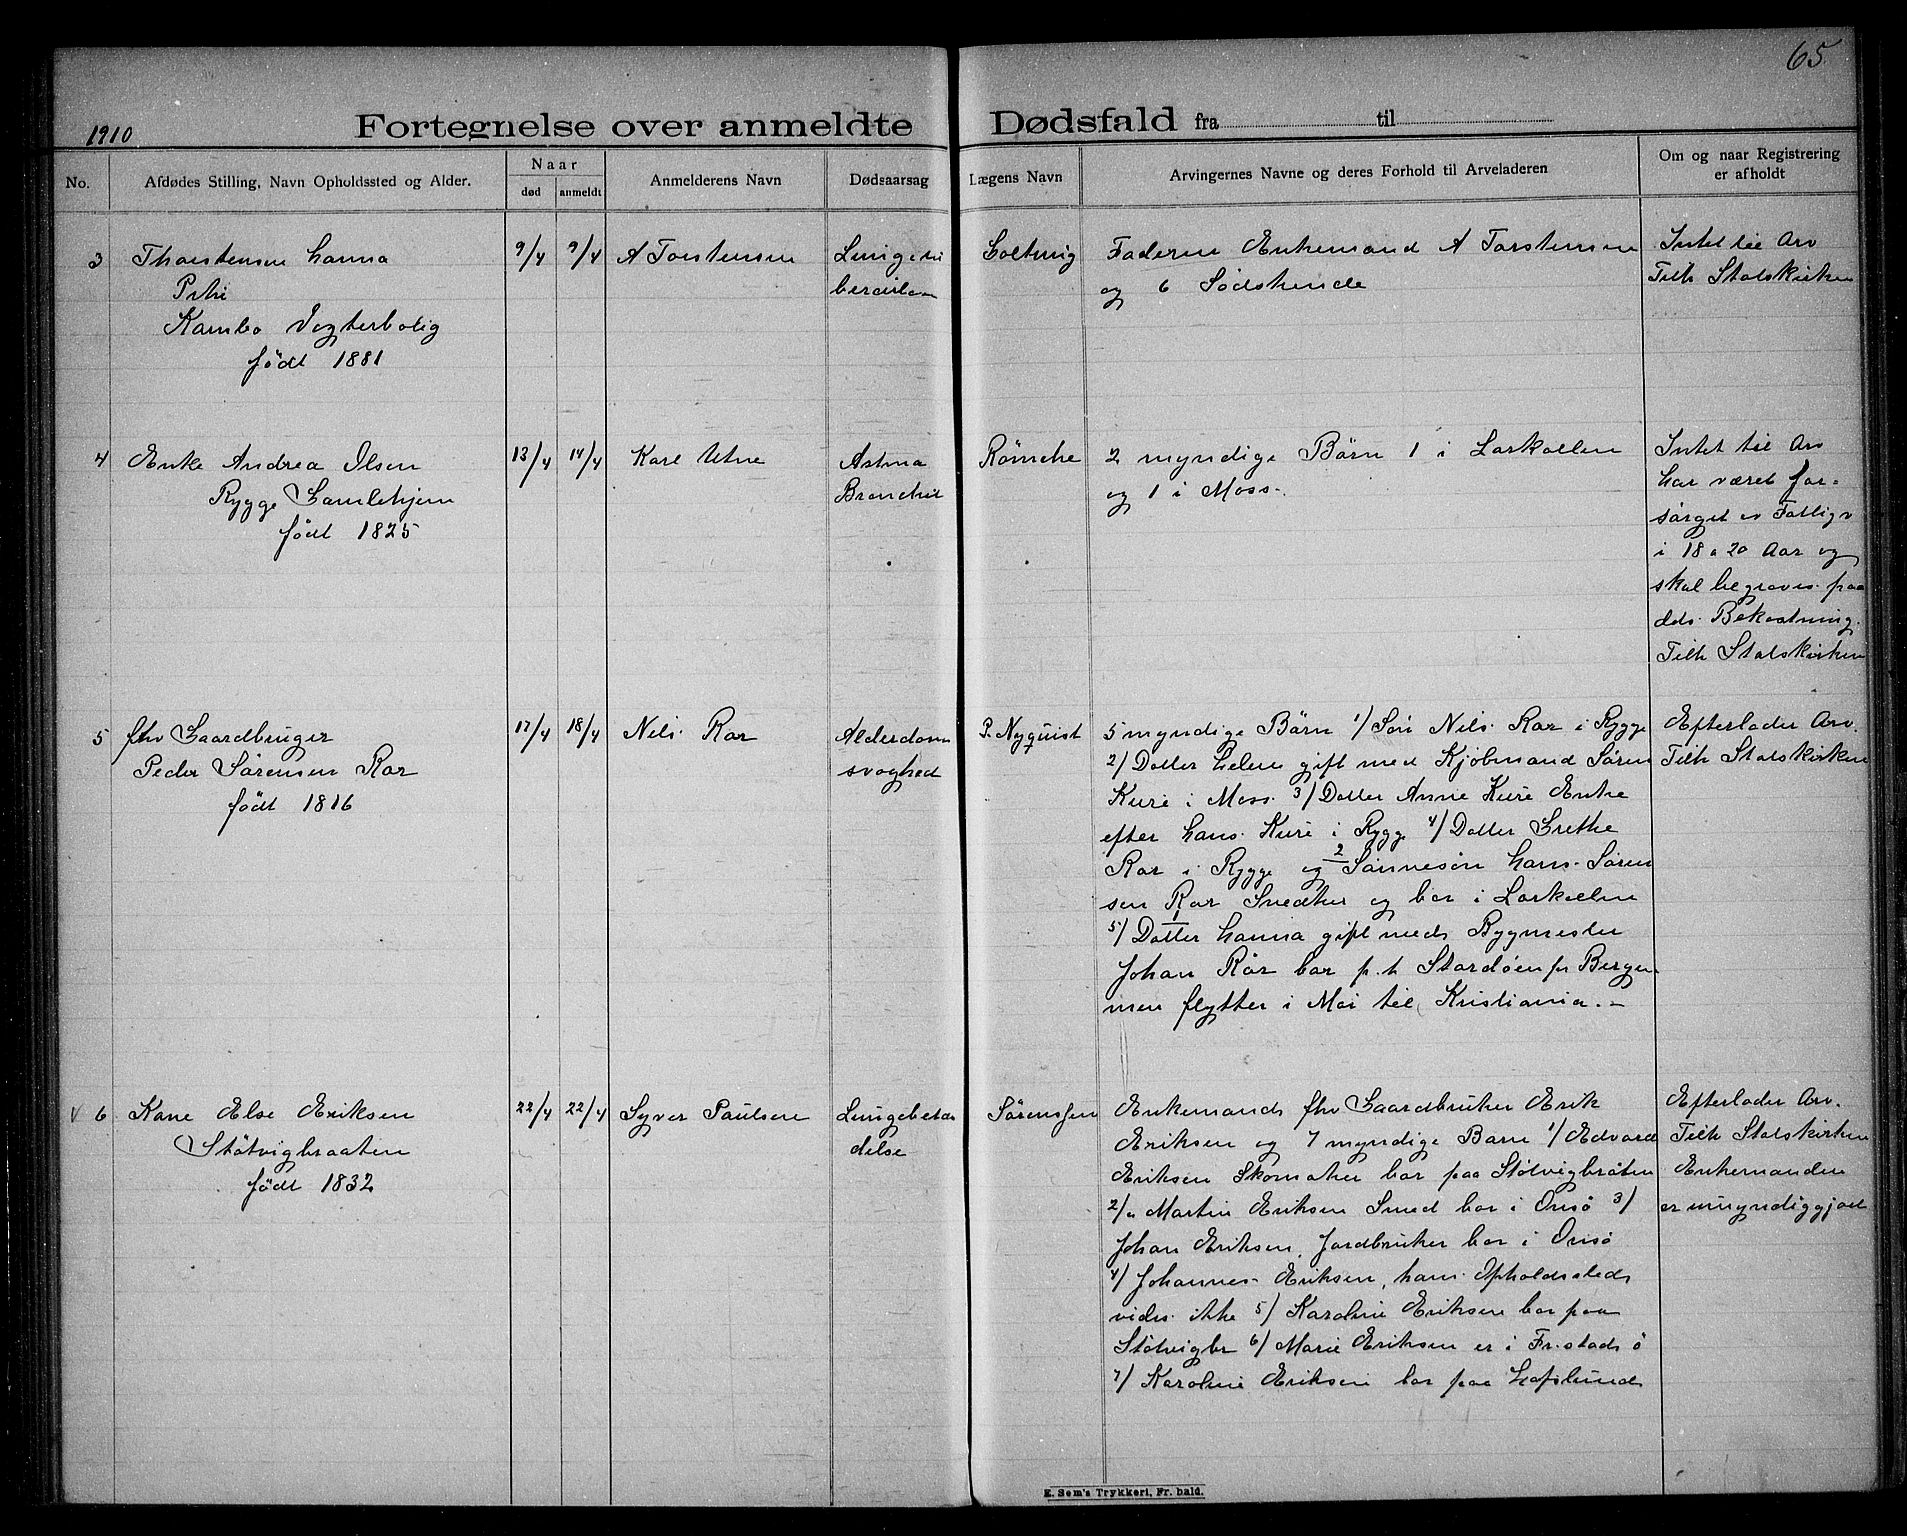 65
1910
Fortegnelse over anmeldte Dødsfald fra til
No.
Afdødes Stilling, Navn Opholdssted og Alder.
Naar
død
anmeldt
Anmelderens Navn
Dødsaarsag
Lægens Navn
Arvingernes Navne og deres Forhold til Arveladeren
Om og naar Registrering
er afholdt
3
Thorstensen Hanna
Petri
Kambo Vogterbolig
født 1881
9/4
9/4
A Torstensen
Lungetu
berculose
Coltung
Faderen Enkemand A Torstensen
og 6 Sødskende
Intet til Arv
Tilh Statskirken
4
Enke Andrea Olsen
Rygge Gamlehjem
født 1825
13/4
14/4
Karl Utne
Astma
Bronchit
Römcke
2 myndige Børn 1 i Larkollen
og 1 i Moss.
Intet til Arv
har været for-
sørget av Fattigv
i 18 a 20 Aar og
skal begraves paa
dds. Bekostning.
Tilh Statskirken
5
fhv Gaardbruger
Peder Sørensen Rør
født 1816
17/4
18/4
Nils Rør
Alderdoms
svaghed
P. Nyquist
5 myndige Børn 1/ Søn Nils Rør i Rygge
2/ Datter Helene gift med Kjøbmand Søren
Kure i Moss 3/ Datter Anne Kure Enke
efter Hans Kure i Rygge 4/ Datter Grethe
Rør i Rygge og 2 Sønnesøn Hans Søren
sen Rør Snedker og bor i Larkollen
5/ 1 Datter Hanna gift med Bygmester
Johan Rør bor p.t. Stordøen pr Bergen
men flytter i Mai til Kristiania. -
Efterlader Arv.
Tilh Statskirken
6
Kone Else Eriksen
Støtvigbraaten
født 1832
22/4
22/4
Syver Paulsen
Lungebetæn
delse
Sørenssen
Enkemand fhv Gaardbruker Erik
Eriksen og 7 myndige Barn 1/ Edvard
Eriksen Skomaker bor paa Støtvigbråten
2/ Martin Eriksen Smed bor i Onsø 3/
Johan Eriksen, Jordbruker bor i Onsø
4/ Johannes Eriksen, hans Opholdssted
vides ikke 5/ Karoline Eriksen bor paa
Støtvigbr 6/ Marie Eriksen er i Fr.stad ö
7/ Karoline Eriksen bor paa Hafslund
Efterlader Arv.
Tilh Statskirken
Enkemanden
er umyndiggjort
E. Sem's Trykkeri, Fr.hald.